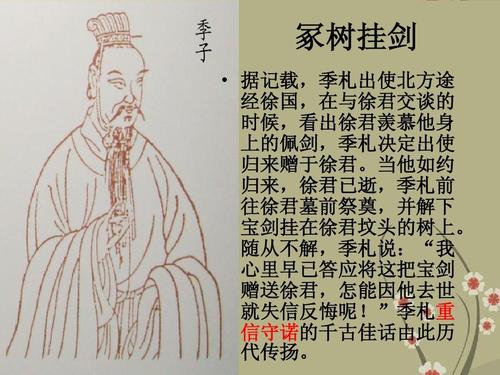 季子
冢树挂剑
• 据记载，季札出使北方途
经徐国，在与徐君交谈的
时候，看出徐君羡慕他身
上的佩剑，季札决定出使
归来赠于徐君。当他如约
归来，徐君已逝，季札前
往徐君墓前祭奠，并解下
宝剑挂在徐君坟头的树上。
随从不解，季札说：“我
心里早已答应将这把宝剑
赠送徐君，怎能因他去世
就失信反悔呢！”季札重
信守诺的千古佳话由此历
代传扬。